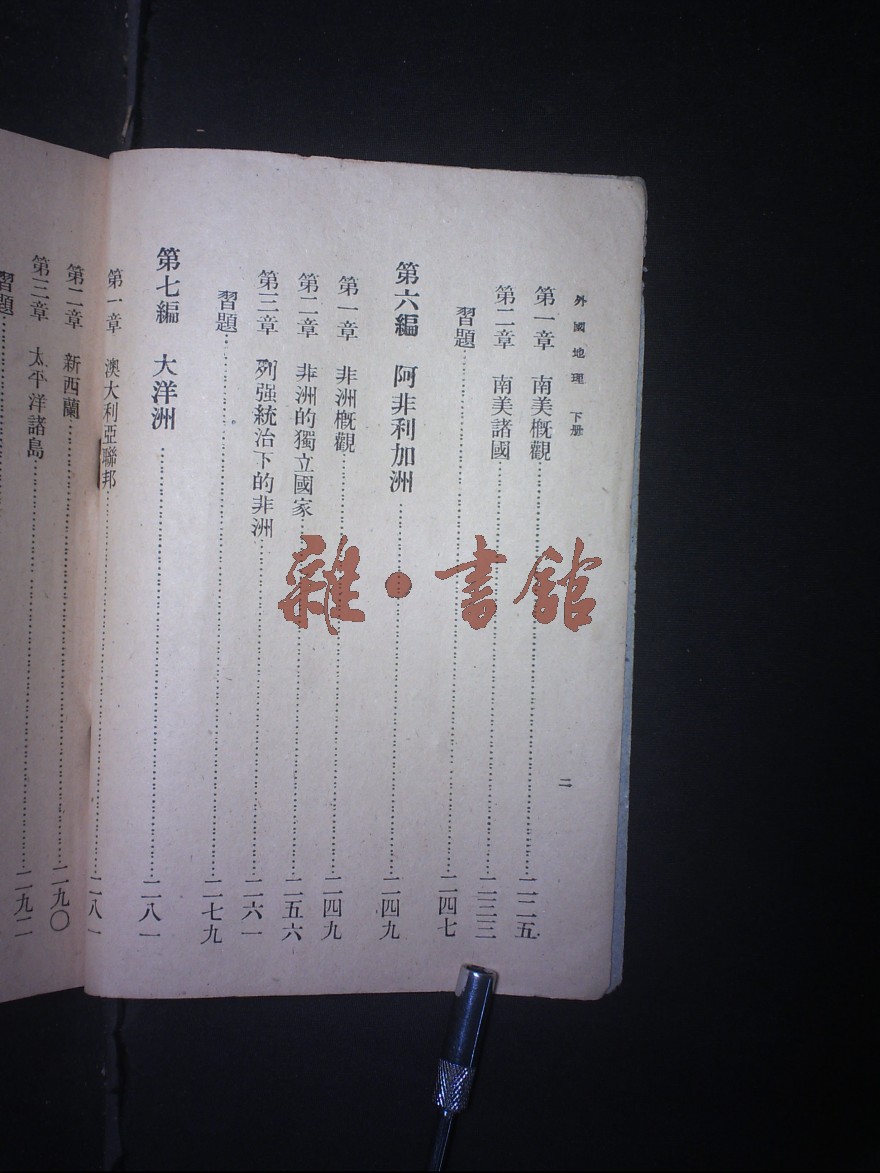 外國地理 下册
二
第一章 南美概觀……二二五
第二章 南美諸國……二三三
習題……二四七
第六編 阿非利加洲……二四九
第一章 非洲概觀……二四九
第二章 非洲的獨立國家……二五六
第三章 列强統治下的非洲……二六一
習題……二七九
第七編 大洋洲……二八一
第一章 澳大利亞聯邦……二八一
第二章 新西蘭……二九〇
第三章 太平洋諸島……二九二
習題……
雜·書館